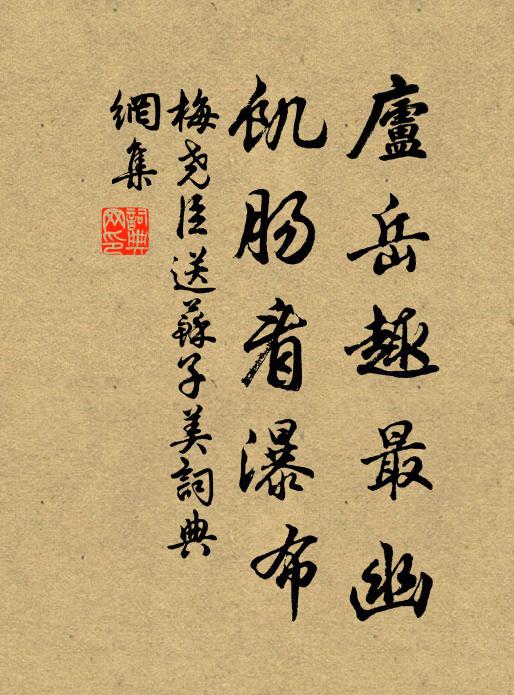 廬岳趣最幽
飢肠看瀑布
梅尧臣送蘇子美詞典
網集
詞典网印